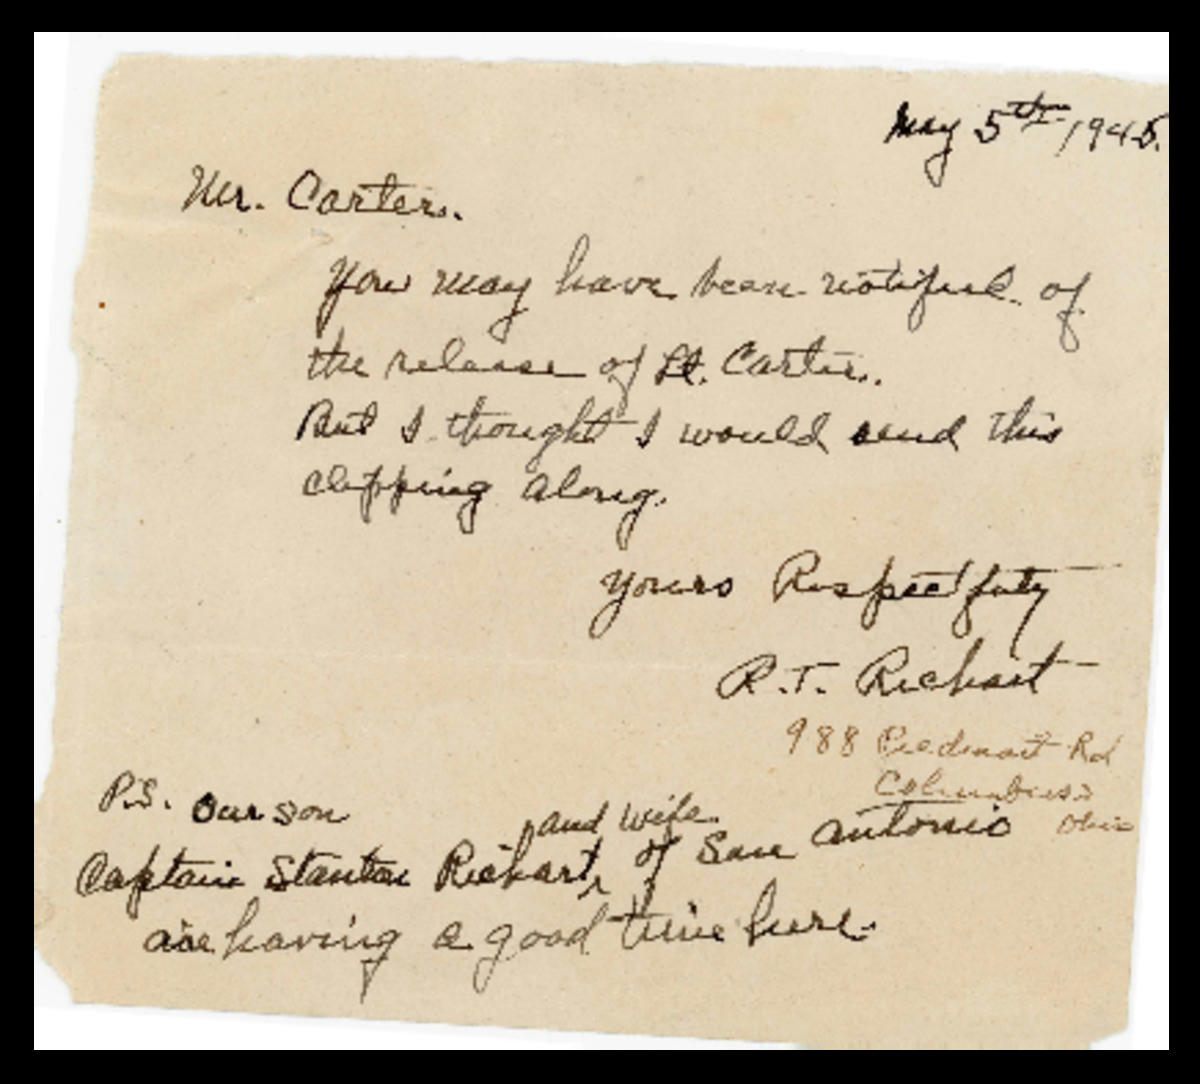 May 5th 1945.
Mr. Carter.
You may have been notified of
the release of Lt. Carter.
But I thought I would send this
clipping along.
Yours Respectfuly
R.T. Richart
988 Piedmont Rd
Columbus
Ohio
P.S. Our son
and wife
Captain Stanton Richart, of San Antonio
are having a good time here.